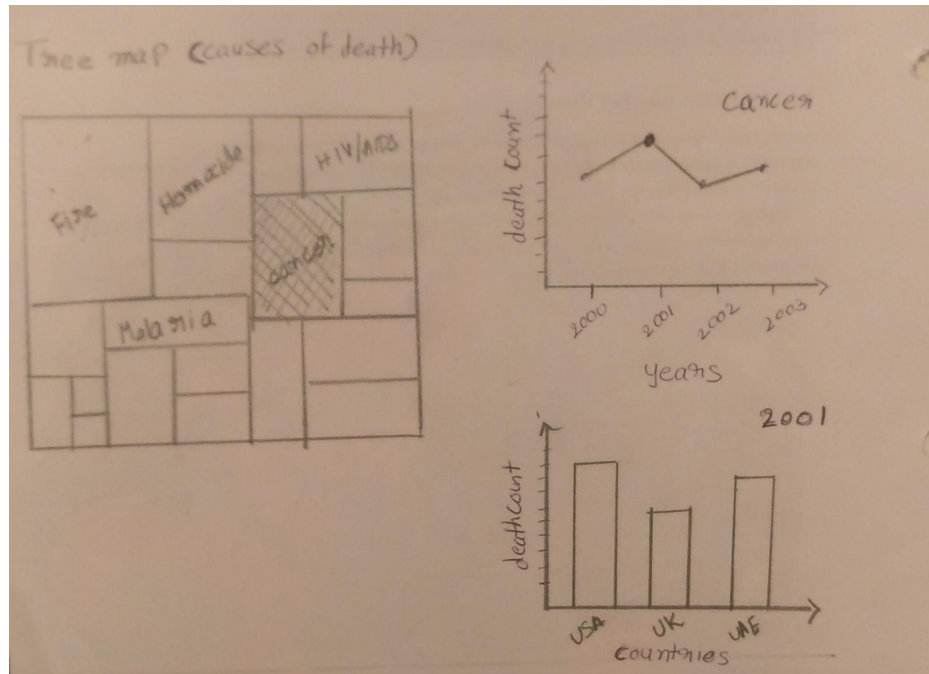 Tree map (causes of death)
Fire
Homocide
HIV/AIDS
cancer
Malaria
Cancer
death count
2000 2001 2002 2003
years
2001
deathcount
USA UK UAE
countries